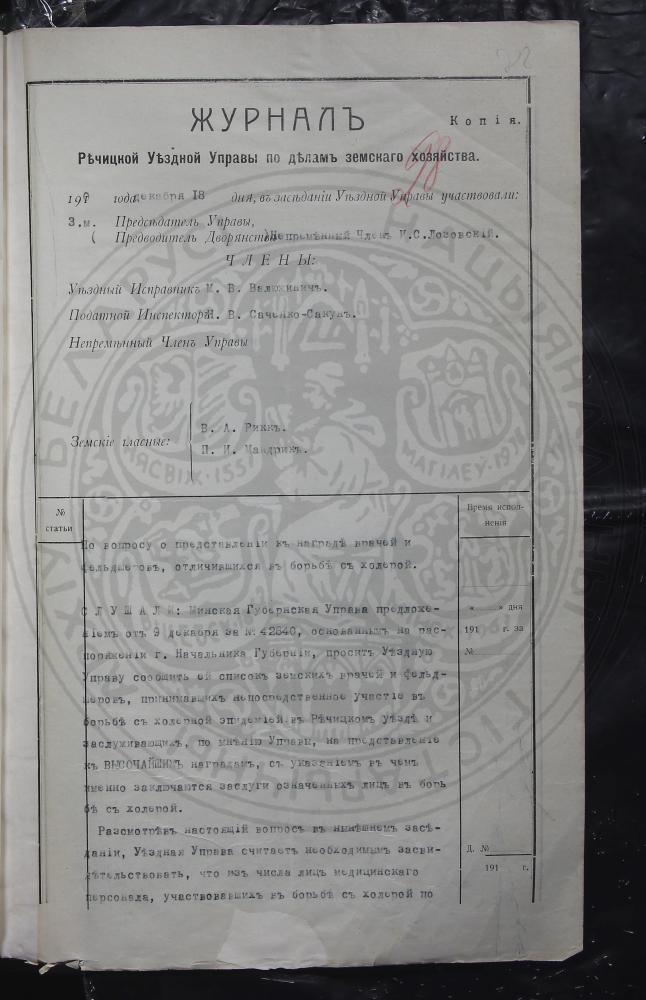 Копія.
ЖУРНАЛЪ
Рѣчицкой Уѣздной Управы по дѣламъ земскаго хозяйства.
98
года декабря 18 дня, въ засѣданіи Уѣздной Управы участвовали:
З.м. Предсѣдатель Управы,
( Предводитель Дворянства) Непремѣнный Членъ И.С.Лозовскій.
ЧЛЕНЫ:
Уѣздный Исправникъ И. В. Валюкивичъ.
Податной Инспекторъ В. Саченко-Сакунъ.
Непремѣнный Членъ Управы
Земскіе гласные:
В. А. Риккъ.
П. И. Мандрикъ.
№ статьи
Время испол-
ненія
По вопросу о представленіи къ наградѣ врачей и
фельдшеровъ, отличившихся въ борьбѣ съ холерой.
СЛУШАЛИ: Минская Губернская Управа предложе-
ніемъ отъ 9 декабря за № 42640, основаннымъ на рас-
поряженіи г. Начальника Губерніи, проситъ Уѣздную
Управу сообщить ей списокъ земскихъ врачей и фельд-
шеровъ, принимавшихъ непосредственное участіе въ
борьбѣ съ холерной эпидеміей въ Рѣчицкомъ уѣздѣ и
заслуживающихъ, по мнѣнію Управы, на представленіе
къ ВЫСОЧАЙШИМЪ наградамъ, съ указаніемъ въ чемъ
именно заключаются заслуги означенныхъ лицъ въ борь
бѣ съ холерой.
Разсмотрѣвъ настоящій вопросъ въ нынѣшнемъ засѣ-
даніи, Уѣздная Управа считаетъ необходимымъ засви-
дѣтельствовать, что изъ числа лицъ медицинскаго
персонала, участвовавшихъ въ борьбѣ съ холерой по
« » дня
191 г. за
№
Д. №
191 г.